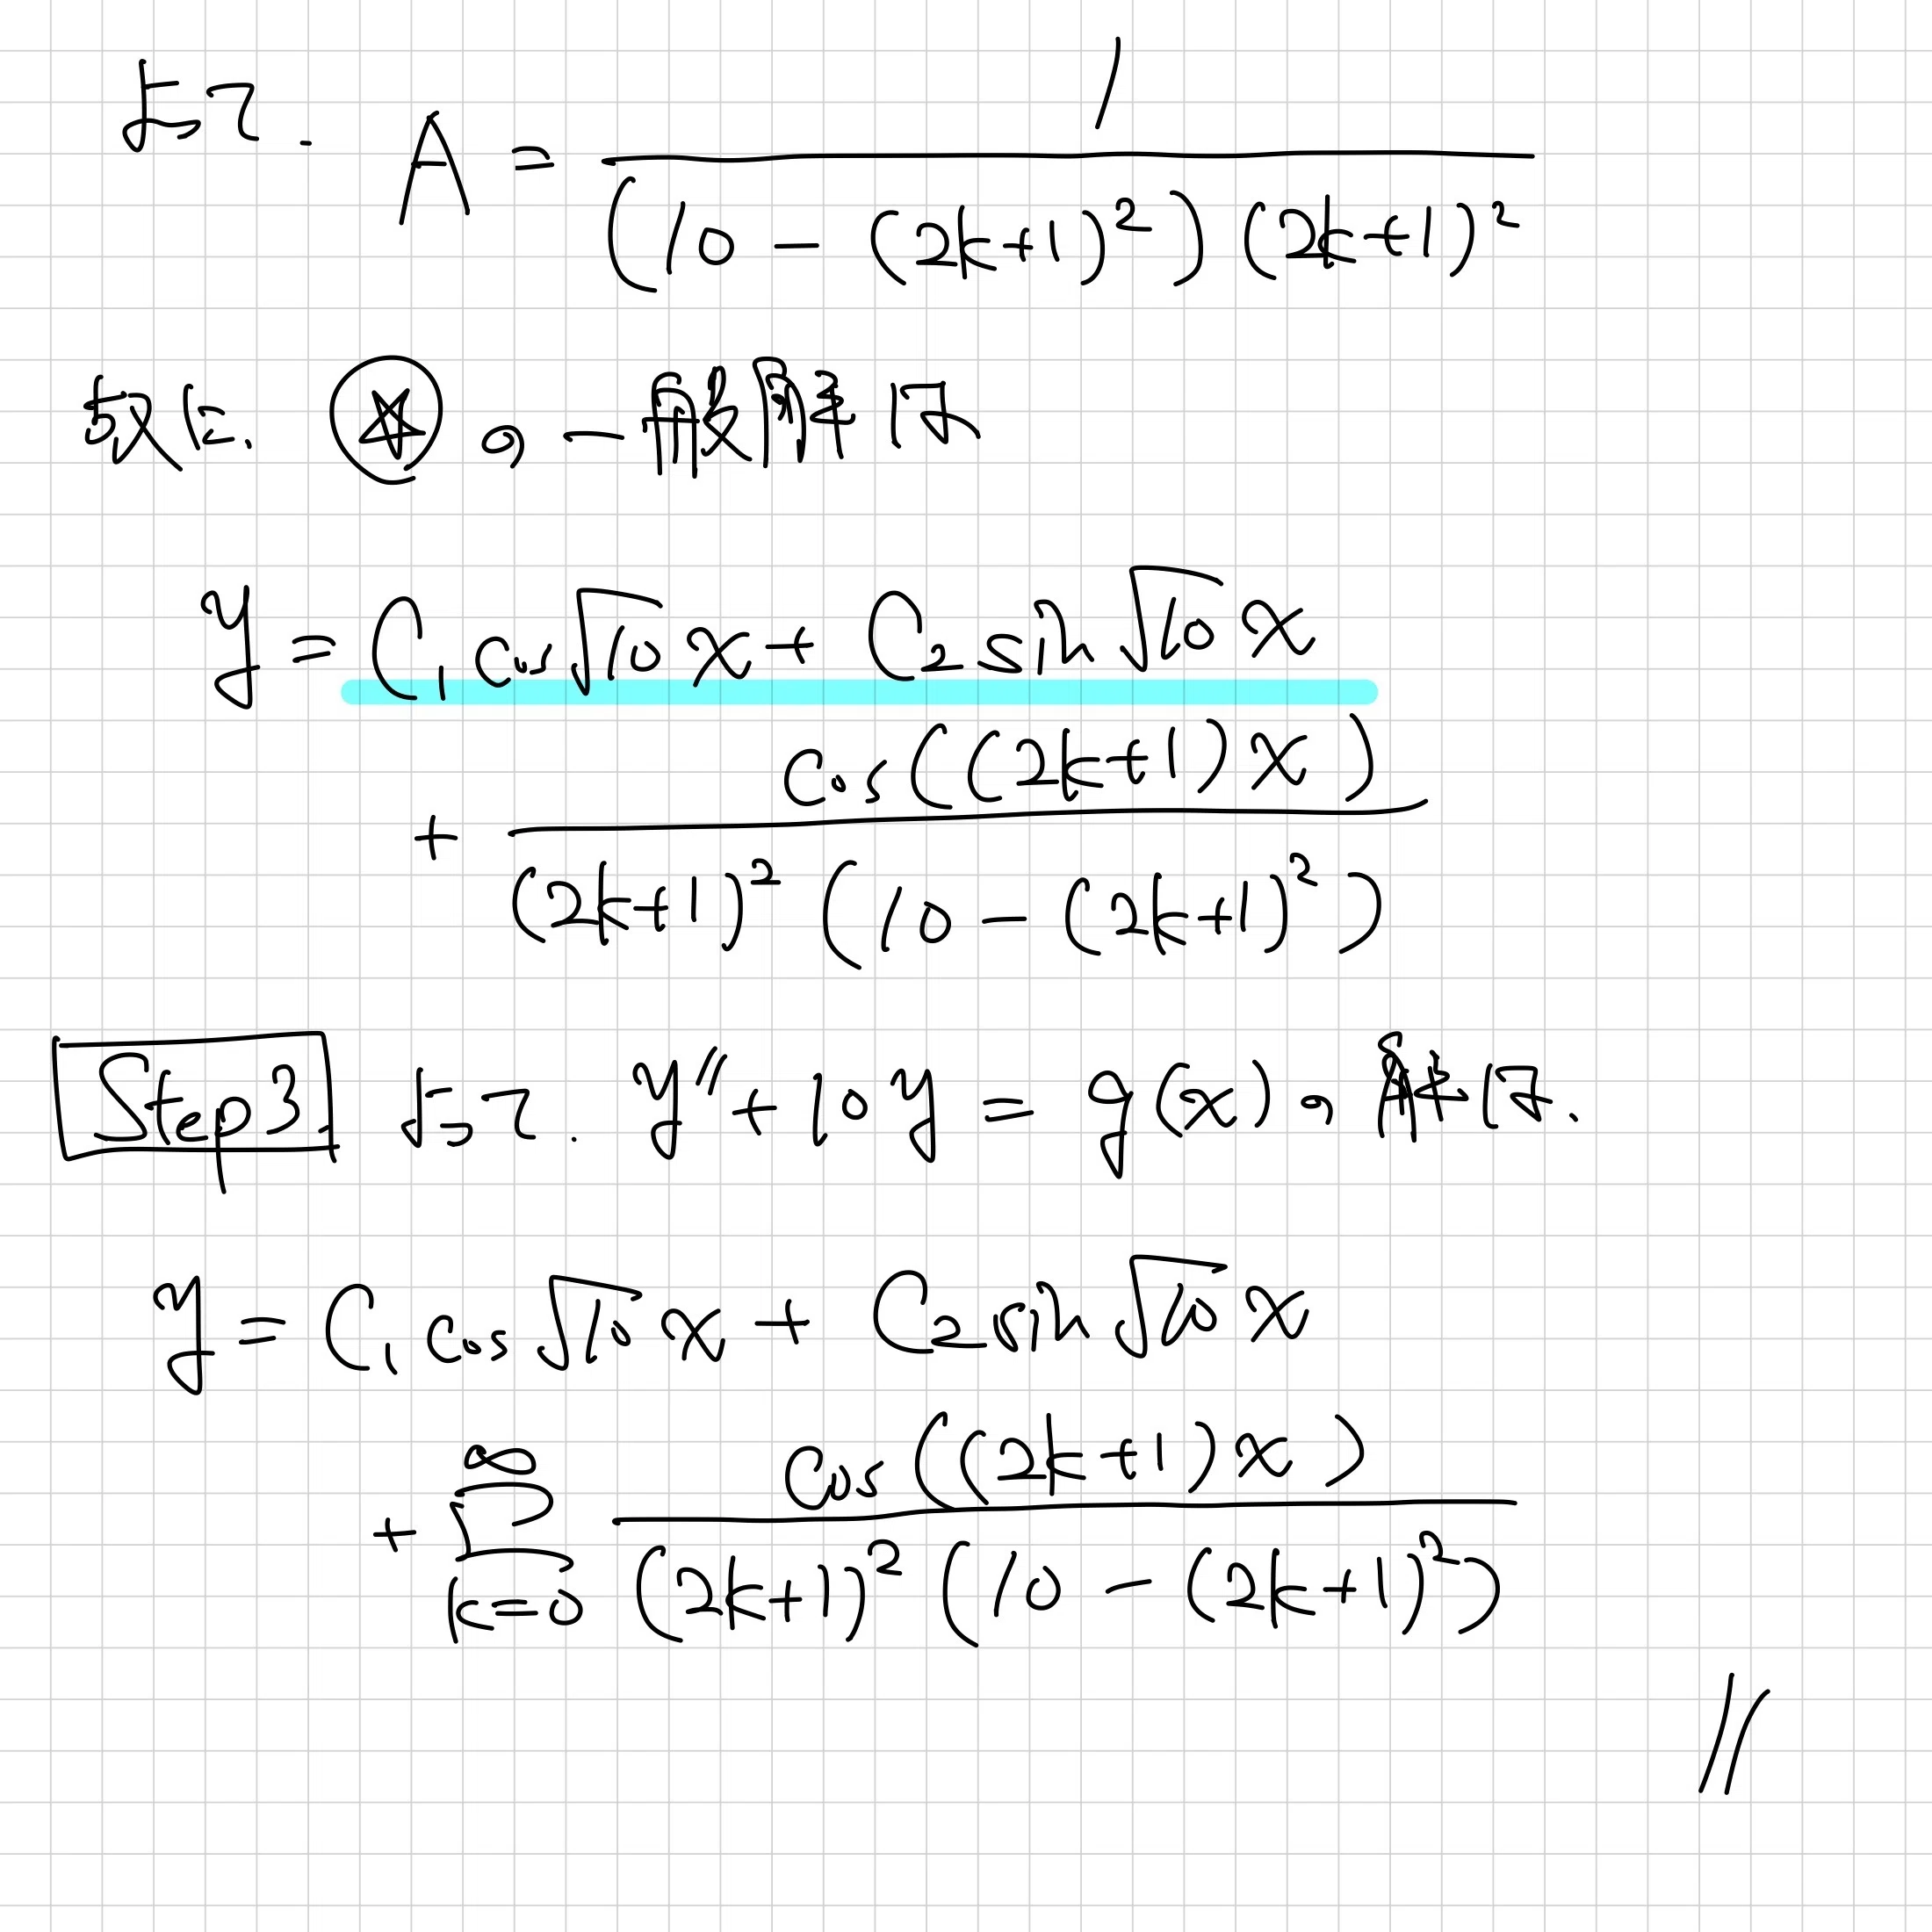 よって. A = 1 / ((10 - (2k+1)²)(2k+1)²)
故に. ⊛ の 一般解は
y = C₁cos√10x + C₂sin√10x
+ cos((2k+1)x) / ((2k+1)²(10 - (2k+1)²))
Step3. よって. y″+10y = g(x) の 解は.
y = C₁cos√10x + C₂sin√10x
+ ∑_{k=0}^{∞} cos((2k+1)x) / ((2k+1)²(10 - (2k+1)²))
//